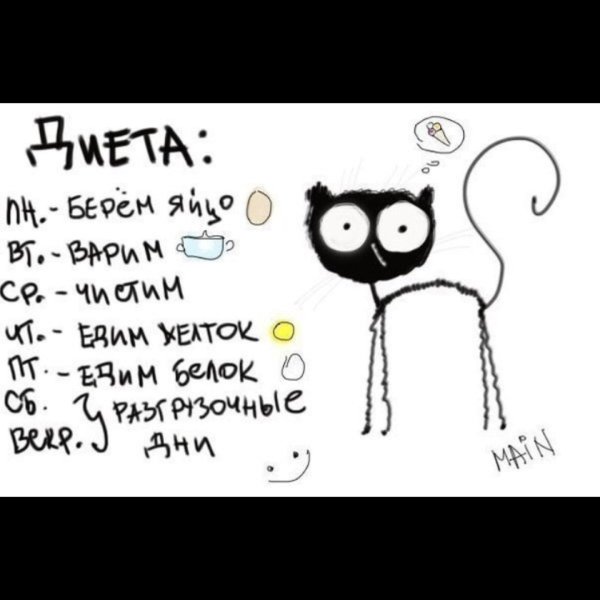 ДИЕТА:
ПН. - БЕРЁМ ЯЙЦО
ВТ. - ВАРИМ
СР. - ЧИСТИМ
ЧТ. - ЕДИМ ЖЕЛТОК
ПТ. - ЕДИМ БЕЛОК
СБ. } РАЗГРУЗОЧНЫЕ
ВСКР. ДНИ
MAIN